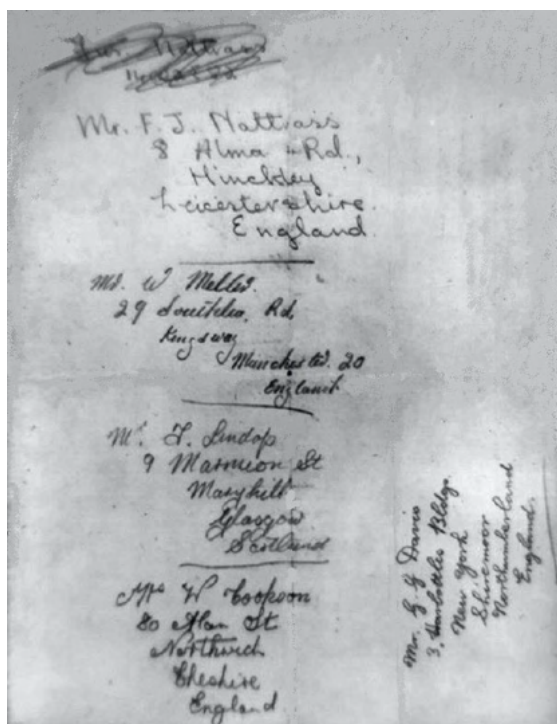 Nattrass
Mr. F. J. Nattrass
8 Alma Rd.,
Hinckley
Leicestershire.
England.
Mr. W Mellor.
29 Rd,
Kingsway
Manchester. 20
England
Mr. F. Lindop
9 Marmion St
Maryhill
Glasgow
Scotland
Mrs W Coopson
80 Alan St
Northwich
Cheshire
England
Mr. G. Y Davis
3, Harbottles Bldgs.
New York
Shiremoor
Northumberland
England.